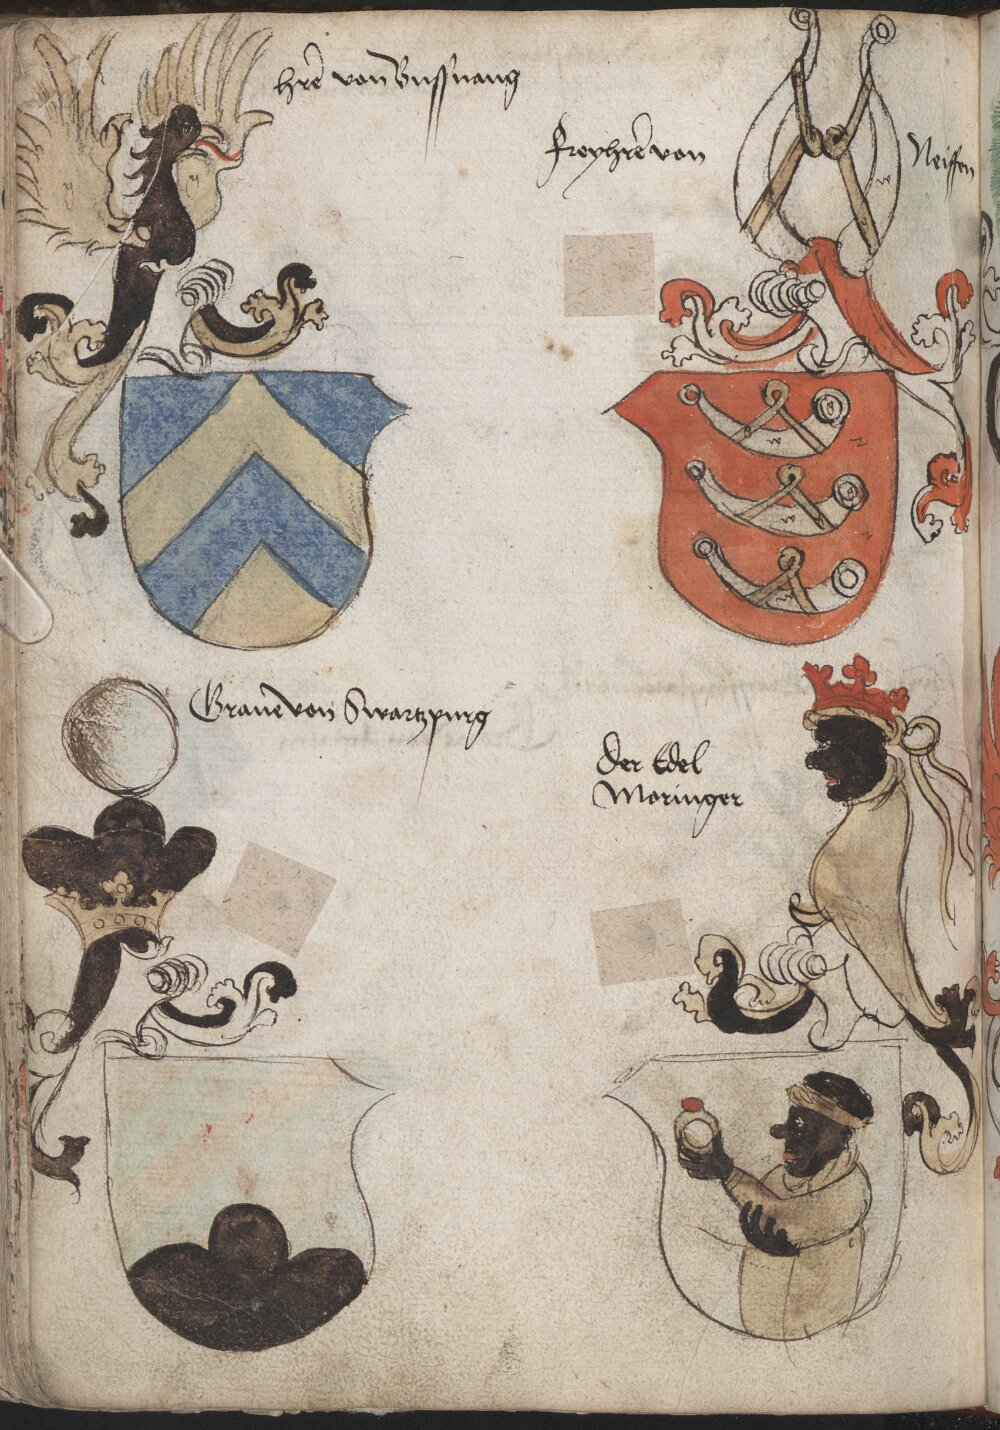 hrē von Bussnang
Freyhrē von Neiffen
Graue von Swartzpurg
Der Edel
Moringer